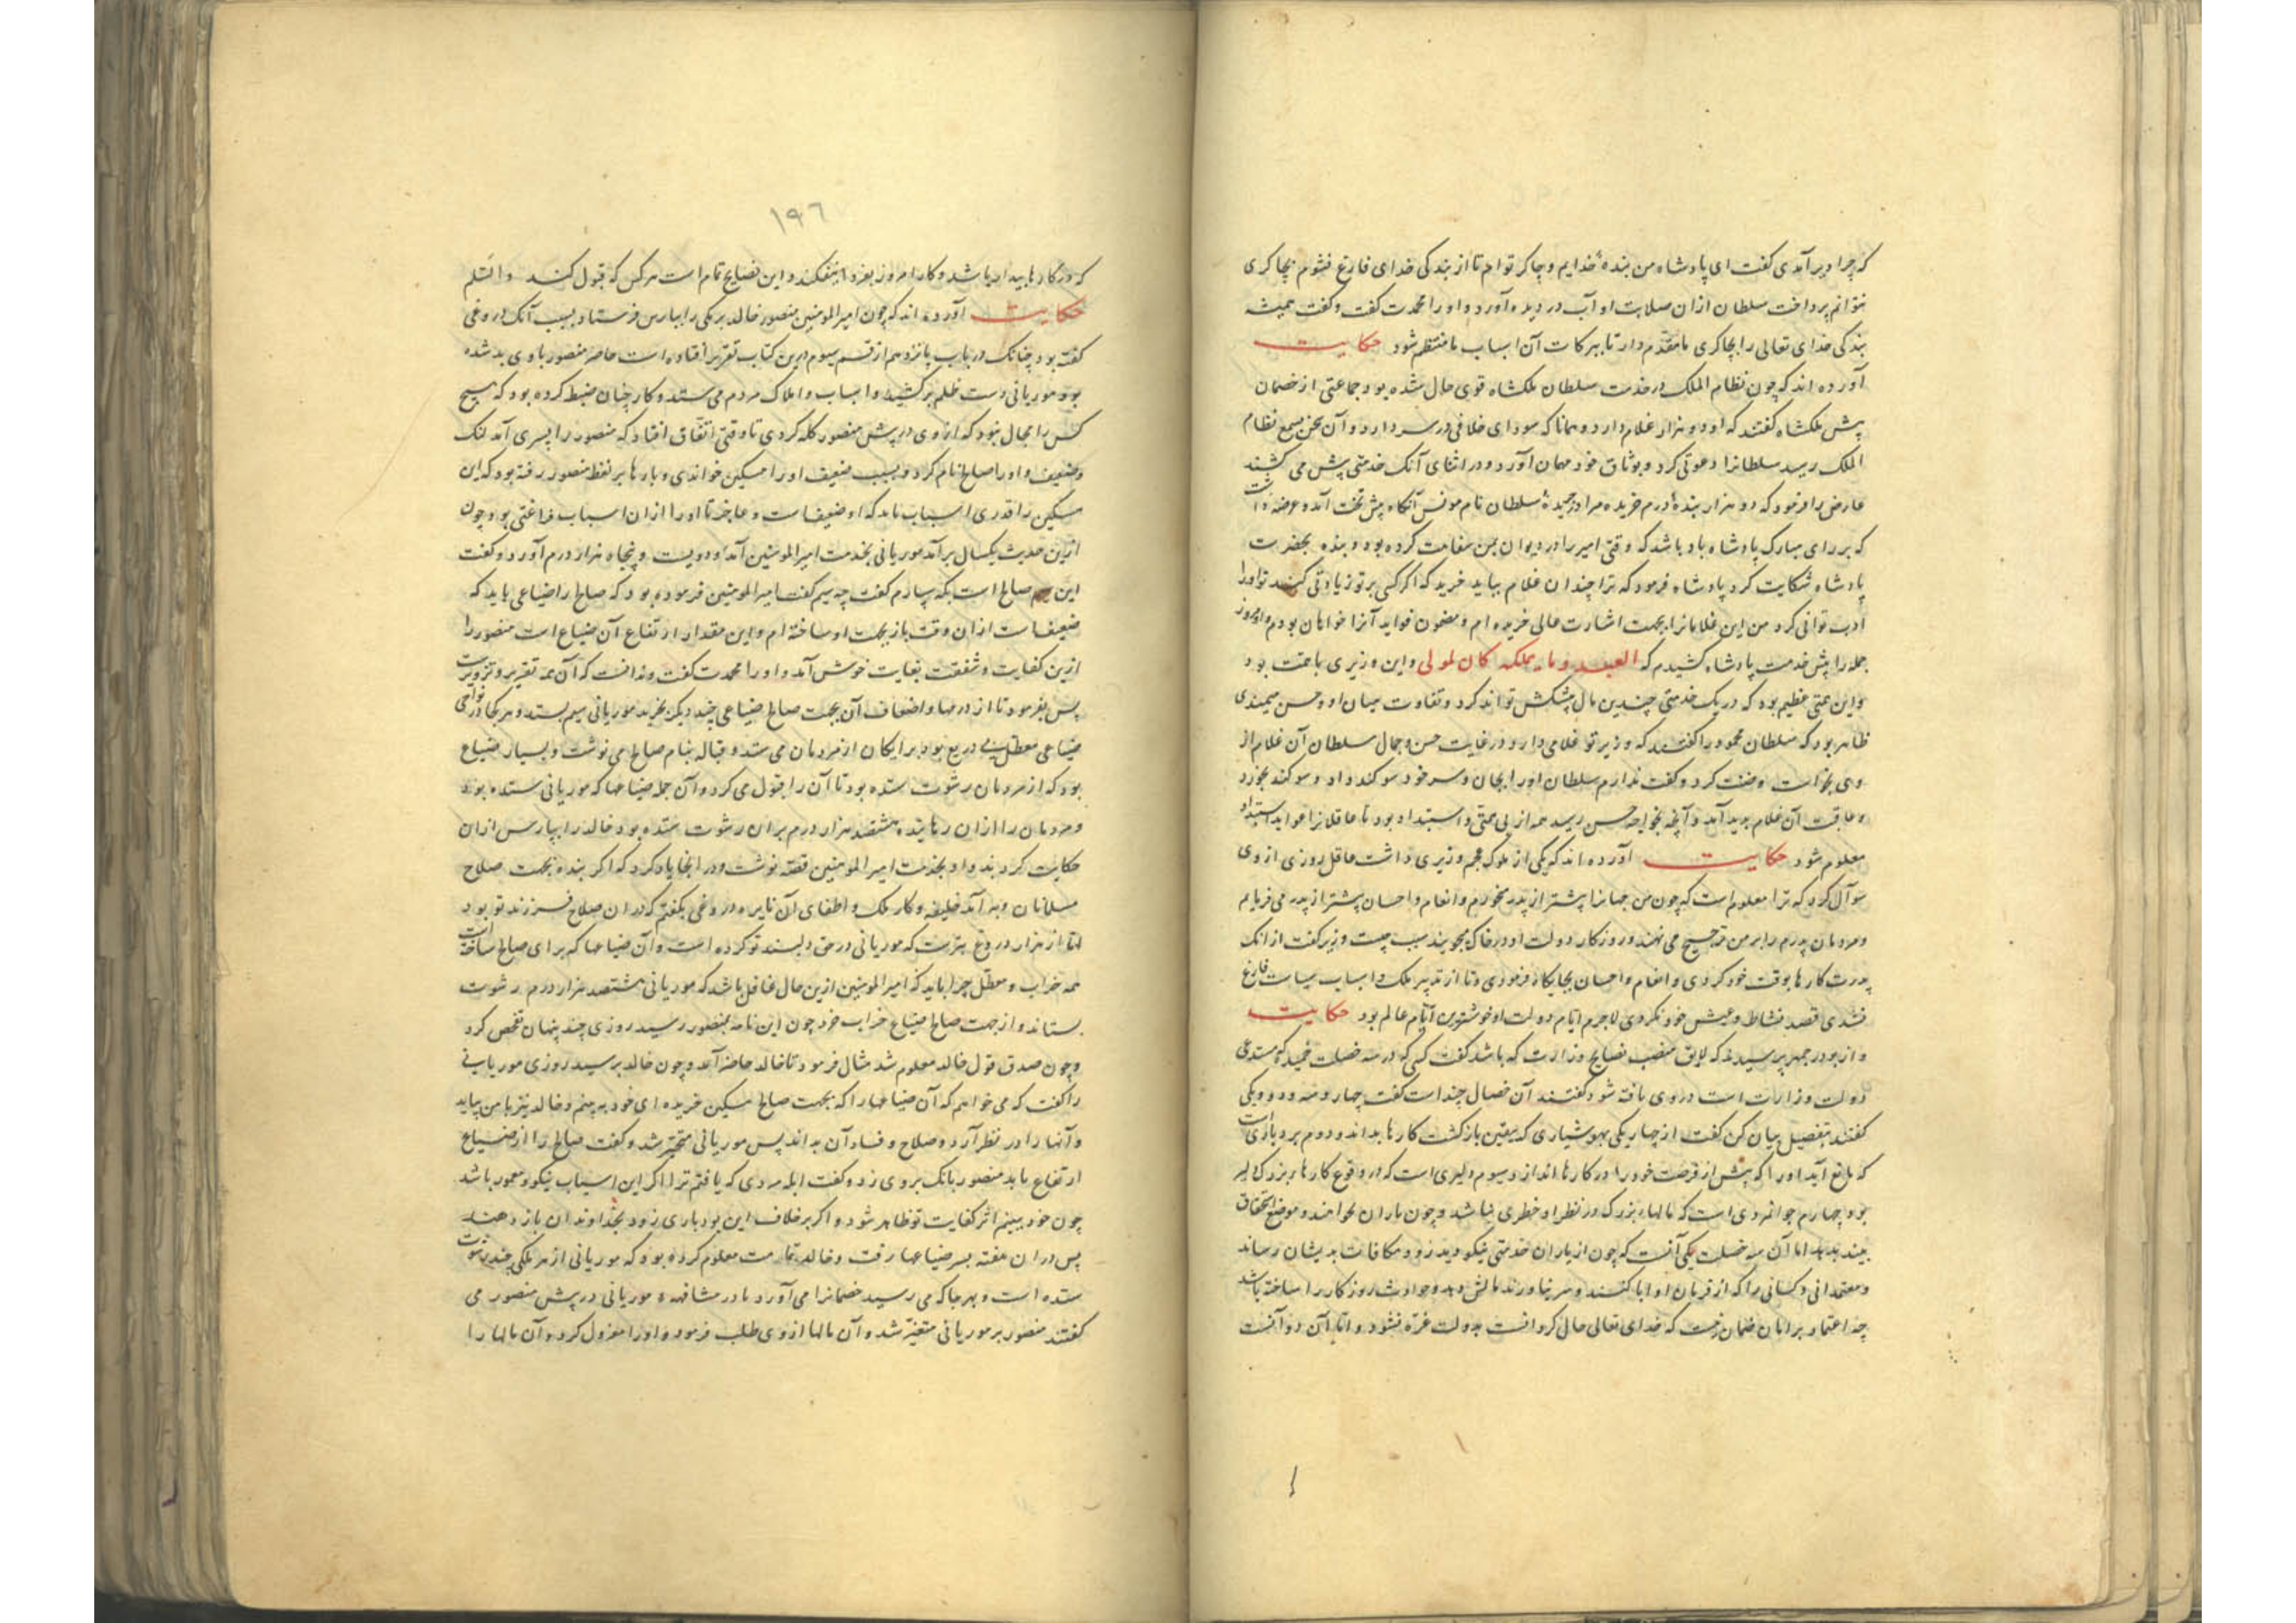 که چرا دیر آمدی گفت ای پادشاه من بندهٔ خدایم و چاکر توام تا از بندگی خدای فارغ نشوم بچاکری
نتوانم پرداخت سلطان ازان صلابت او آب در دیده آورد و او را محمدت گفت و گفت همیشه
بندگی خدای تعالی را بچاکری ما مقدم دار تا ببرکات آن اسباب ما منتظم شود حکایت
آورده اند که چون نظام الملک در خدمت سلطان ملکشاه قوی حال شده بود جماعتی از خصمان
پیش ملکشاه گفتند که او دو هزار غلام دارد و همانا که سودای خلافی در سر دارد و آن سخن بسمع نظام
الملک رسید سلطانرا دعوتی کرد و بوثاق خود مهمان آورد و در اثنای آنک خدمتی پیش می کشیند
عارض را فرمود که دو هزار بندهٔ درم خریده سلطان نام مونس آنگاه پیش تخت آمد و عرضه داشت
که بر رای مبارک پادشاه یاد باشد که وقتی امیر را در دیوان بمن سفاهت کرده بود و بنده بحضرت
پادشاه شکایت کرد پادشاه فرمود که ترا چندان غلام بباید خرید که اگر کسی بر تو زیادتی کند تو او را
ادب توانی کرد من این غلامانرا بجهت اشارت عالی خریده ام و مضمون فواید آنرا خواهان بودم و امروز
جمله را پیش خدمت پادشاه کشیدم که العبد و ما یملکه کان لمولی و این وزیری با همت بود
و این همتی عظیم بود که در یک خدمتی چندین مال پیشکش تواند کرد و تفاوت میان او و حسن میمندی
ظاهر بود که سلطان محمود را گفتند که وزیر تو غلامی دارد در غایت حسن و جمال سلطان آن غلام از
وی بخواست و ضنت کرد و گفت ندارم سلطان او را بجان و سر خود سوگند داد و سوگند بخورد
و عاقبت آن غلام پدید آمد و آنچه بخواجه حسن رسید همه از بی همتی و استبداد بود تا عاقلانرا عواید استبداد
معلوم شود حکایت آورده اند که یکی از ملوک عجم وزیری داشت عاقل روزی از وی
سوال کرد که ترا معلوم است که چون من جهانرا پیشتر از پدر میخورم و انعام و احسان پیشتر از پدر می فرمایم
و مردمان پدرم را بر من ترجیح می نهند و روزگار دولت او در خاک میجویند سبب چیست وزیر گفت از آنک
پدرت کارها بوقت خود کردی و انعام و احسان بجایگاه فرمودی و تا از تدبیر ملک و اسباب سیاست فارغ
نشدی قصد نشاط و عیش خود نکردی لاجرم ایام دولت او خوشترین ایام عالم بود حکایت
و از بوذرجمهر پرسیدند که لایق منصب نصایح وزارت که باشد گفت کسی که در سه خصلت حمید که مستدعی
دولت وزارات است در وی یافته شود گفتند آن خصال چند است گفت چهار و سه و دو و یکی
گفتند بتفصیل بیان کن گفت از چهار یکی بهوشیاری که بیقین بازگشت کارها بداند و دوم بردباری است
که مانع آید او را که پیش از فرصت خود را در کارها اندازد و سیوم دلیری است که از وقوع کارها بزرگ دلیر
بود چهارم جوانمردی است که مالهاء بزرگ در نظر او خطری نباشد و چون یاران بخواهند و موضع استحقاق
بیند بدهد اما آن سه خصلت یکی آنست که چون از یاران خدمتی نیکو دید زود مکافات بدیشان رساند
و معتمدانی و کسانی را که از فرمان او ابا کنند و سر نیاورند مالش دهد و حوادث روزگار را ساخته باشد
چه اعتماد بر امان ضمان نیست که خدای تعالی حال کردانست بدولت غره نشود و اما آن دو آنست
١٩٦
که در کارها بیدار باشد و کار امروز بفردا نیفکند و این نصایح تمام است هر کس که قبول کند والسلم
حکایت آورده اند که چون امیر المومنین منصور خالد برمکی را بپارس فرستاد بسبب آنک دروغی
گفته بود چنانک در باب پانزدهم از قسم سیوم درین کتاب تقریر افتاده است خاصه منصور با وی بد شده
بود موریانی دست ظلم بر کشید و اسباب و املاک مردم می ستد و کار چنان ضبط کرده بود که هیچ
کس را مجال نبود که از وی در پیش منصور گله کردی تا وقتی اتفاق افتاد که منصور را پسری آمد لنگ
و ضعیف و او را صالح نام کرد و بسبب ضعیف او را مسکین خواندی و بارها بر لفظ منصور رفته بود که این
مسکین را قدری اسباب باید که او ضعیف است و عاجز تا او را ازان اسباب فراغتی بود چون
ازین حدیث یکسال بر آمد موریانی بخدمت امیر المومنین آمد و دویست و پنجاه هزار درم آورد و گفت
این سیم صالح است بکه سپارم گفت چه سیم گفت امیر المومنین فرموده بود که صالح را ضیاعی باید که
ضعیف است ازان وقت باز بجهت او ساخته ام و این مقدار ارتفاع آن ضیاع است منصور را
ازین کفایت و شفقت بغایت خوش آمد و او را محمدت گفت و ندانست که آن همه تقریر و تزویر است
پس بفرمود تا از درمها و اضعاف آن بجهت صالح ضیاعی چند دیگر بخرید موریانی سیم بستد و هر کجا در نواحی
ضیاعی معطل بی دریع بود برایگان از مردمان می ستد و قباله بنام صالح می نوشت و بسیار ضیاع
بود که از مردمان رشوت ستده بود تا آن را قبول می کرد و آن جمله ضیاعها که موریانی ستده بود
و مردمان را ازان رهانیده هشتصد هزار درم بران رشوت ستده بود خالد را بپارس ازان
حکایت کردند و او بخدمت امیر المومنین قصه نوشت و در انجا یاد کرد که اگر بنده بجهت صلاح
مسلمانان و بر آمد خلیفه و کار ملک و اطفای آن نایره دروغی بگفتم که دران صلاح فرزند تو بود
اما از هزار دروغ بترست که موریانی در حق دلبند تو کرده است و آن ضیاعها که برای صالح ساخته است
همه خراب و معطل چرا باید که امیر المومنین ازین حال غافل باشد که موریانی هشتصد هزار درم رشوت
بستاند و از جهت صالح ضیاع خراب خرد چون این نامه بمنصور رسید روزی چند پنهان تفحص کرد
و چون صدق قول خالد معلوم شد مثال فرمود تا خالد حاضر آمد و چون خالد برسید روزی موریانی
را گفت که می خواهم که آن ضیاعها را که بجهت صالح مسکین خریده ای خود به بینم و خالد نیز با من بیاید
و آنها را در نظر آرد و صلاح و فساد آن بداند پس موریانی متحیر شد و گفت صالح را از ضیاع
ارتفاع باید منصور بانک بر وی زد و گفت ابله مردی که یافتم ترا اگر این اسباب نیکو و معمور باشد
چون خود ببینم اثر کفایت تو ظاهر شود و اگر برخلاف این بود باری زود بخداوندان باز دهند
پس دران هفته بسر ضیاعها رفت و خالد بتمامت معلوم کرده بود که موریانی از هر ملکی چند رشوت
ستده است و بهر جا که می رسید خصمانرا می آورد تا در مشافهه موریانی در پیش منصور می
گفتند منصور بر موریانی متغیر شد و آن مالها از وی طلب فرمود و او را معزول کرد و آن مالها را